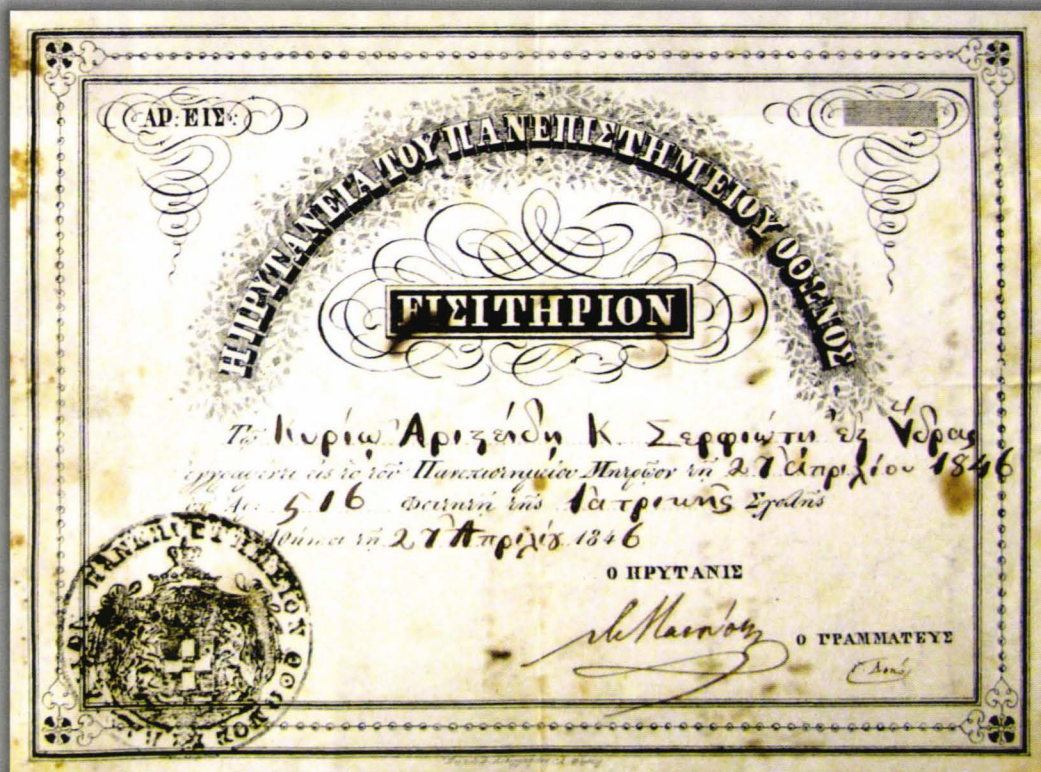 ΑΡ: ΕΙΣ:
Η ΠΡΥΤΑΝΕΙΑ ΤΟΥ ΠΑΝΕΠΙΣΤΗΜΕΙΟΥ ΟΘΩΝΟΣ
ΕΙΣΙΤΗΡΙΟΝ
Τῷ Κυρίῳ Ἀριστείδῃ Κ. Σερφιώτῃ ἐξ Ὕδρας
ἐγγραφέντι εἰς τὸ τοῦ Πανεπιστημείου Μητρῷον τῇ 27 Ἀπριλίου 1846
Ἀρ: 516 Φοιτητῇ τῆς Ἰατρικῆς Σχολῆς
Ἀθήναι τῇ 27 Ἀπριλίου 1846
Ο ΠΡΥΤΑΝΙΣ
Ο ΓΡΑΜΜΑΤΕΥΣ